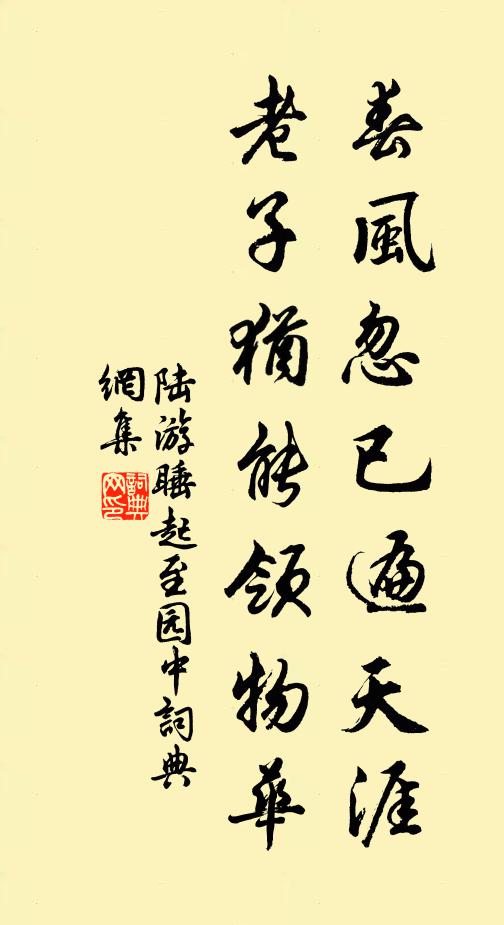 春風忽已遍天涯
老子猶能領物華
陆游睡起至园中詞典
網集
詞典網印